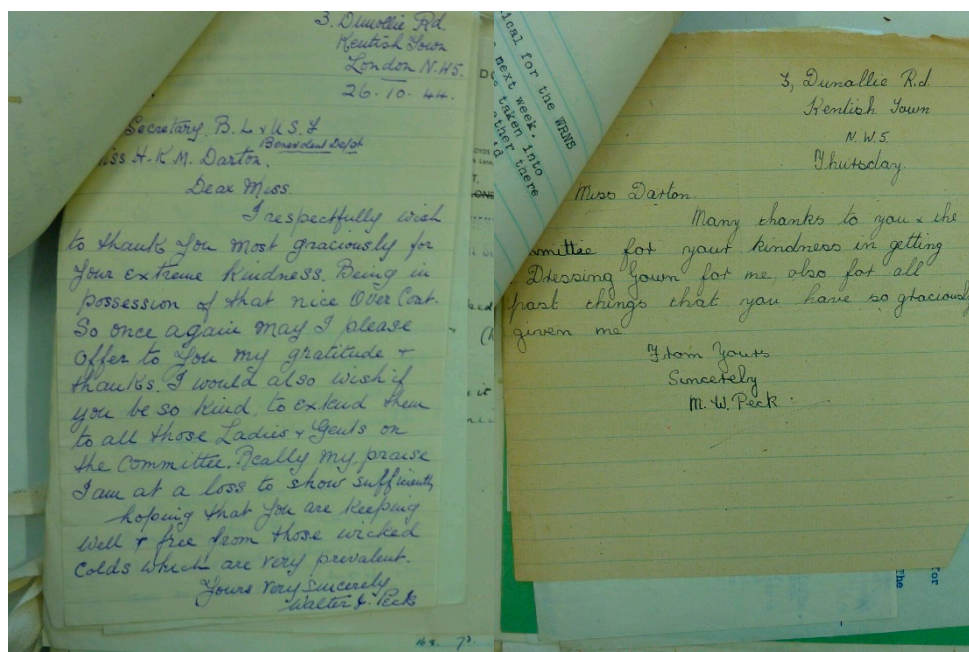 3. Dunollie Rd.
Kentish Town
London N.W5.
26.10.44.
Secretary. B.L & U.S.F
Benevolent Dept
iss H.K.M. Darton.
Dear Miss.
I respectfully wish
to thank you most graciously for
Your extreme kindness. Being in
possession of that nice Over Coat.
So once again may I please
Offer to You my gratitude &
thanks. I would also wish if
you be so kind, to extend them
to all those Ladies & Gents on
the Committee. Really my praise
I am at a loss to show sufficiently
hoping that you are keeping
well & free from those wicked
Colds which are very prevalent.
Yours very sincerely
Walter J. Peck
ical for the WRNS
next week.
taken into
ather there
3, Dunallie R.d.
Kentish Town
N.W.5.
Thursday.
Miss Darton.
Many thanks to you & the
mmittee for your kindness in getting
Dressing Gown for me, also for all
past things that you have so graciously
given me.
From Yours
Sincerely
M. W. Peck.
for
The